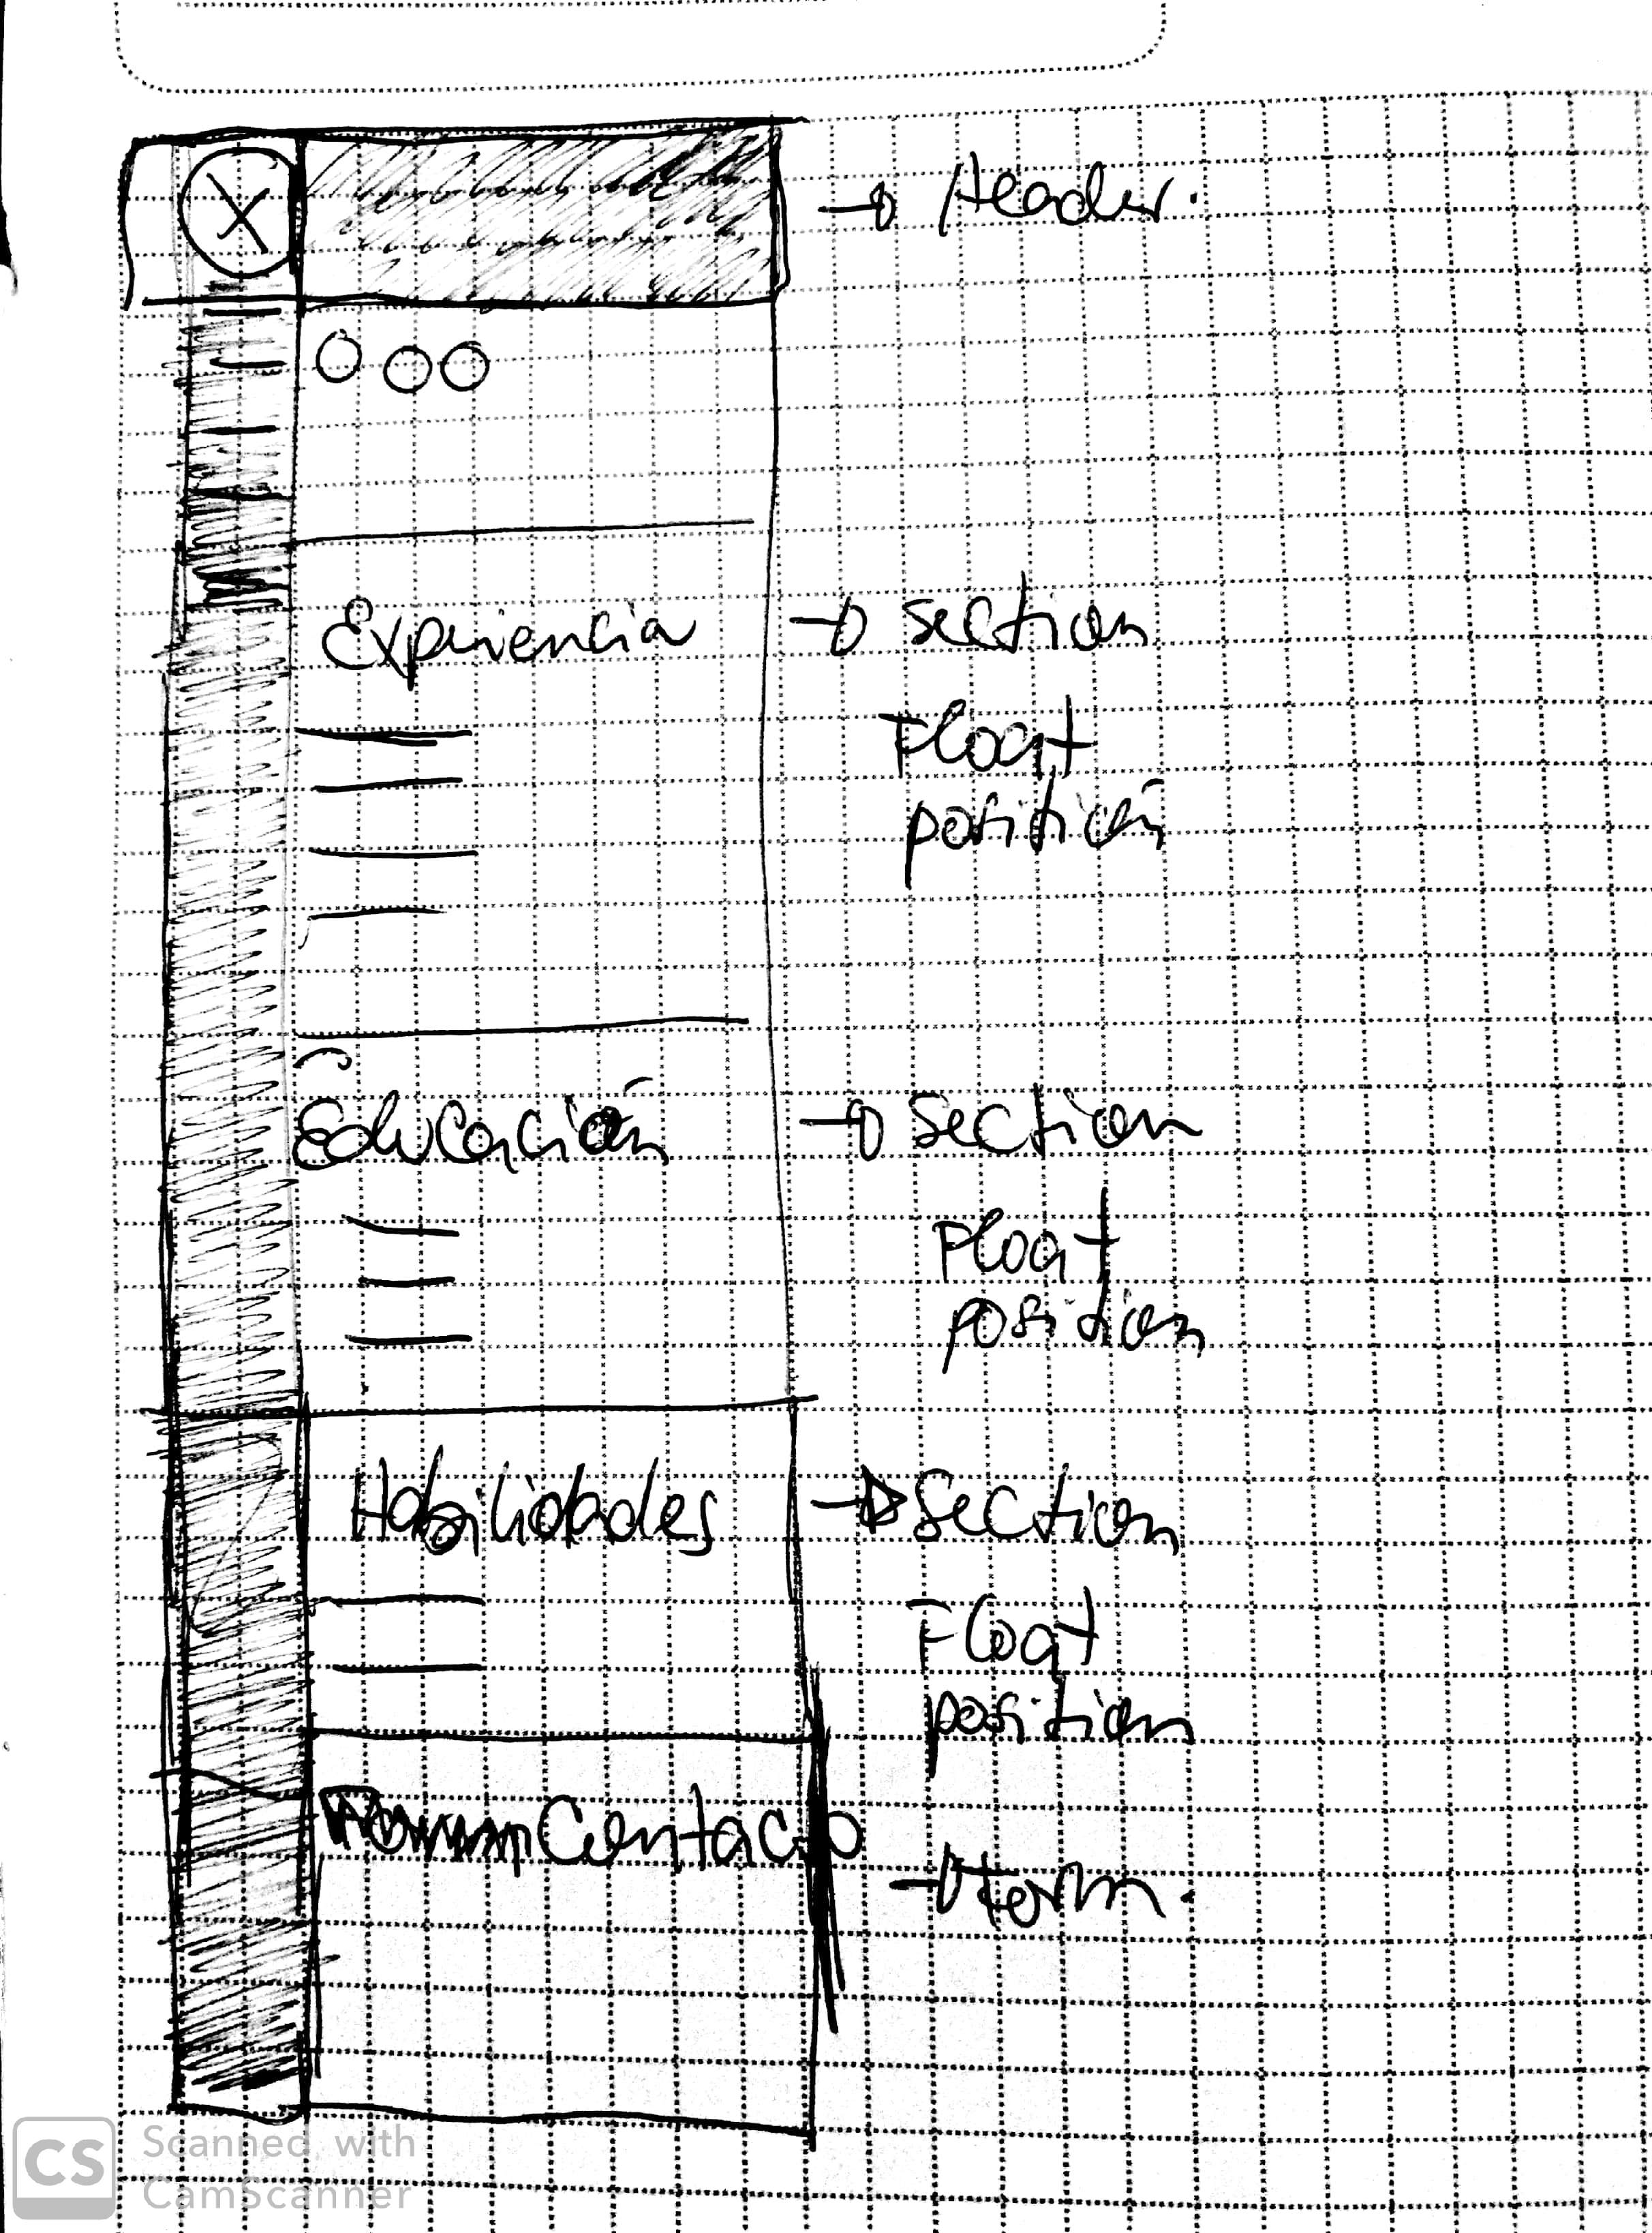 → Header.
Experiencia → section
Float
position
Educación → section
Float
position
Habilidades → Section
Float
position
Contacto → form.
CS Scanned with
CamScanner